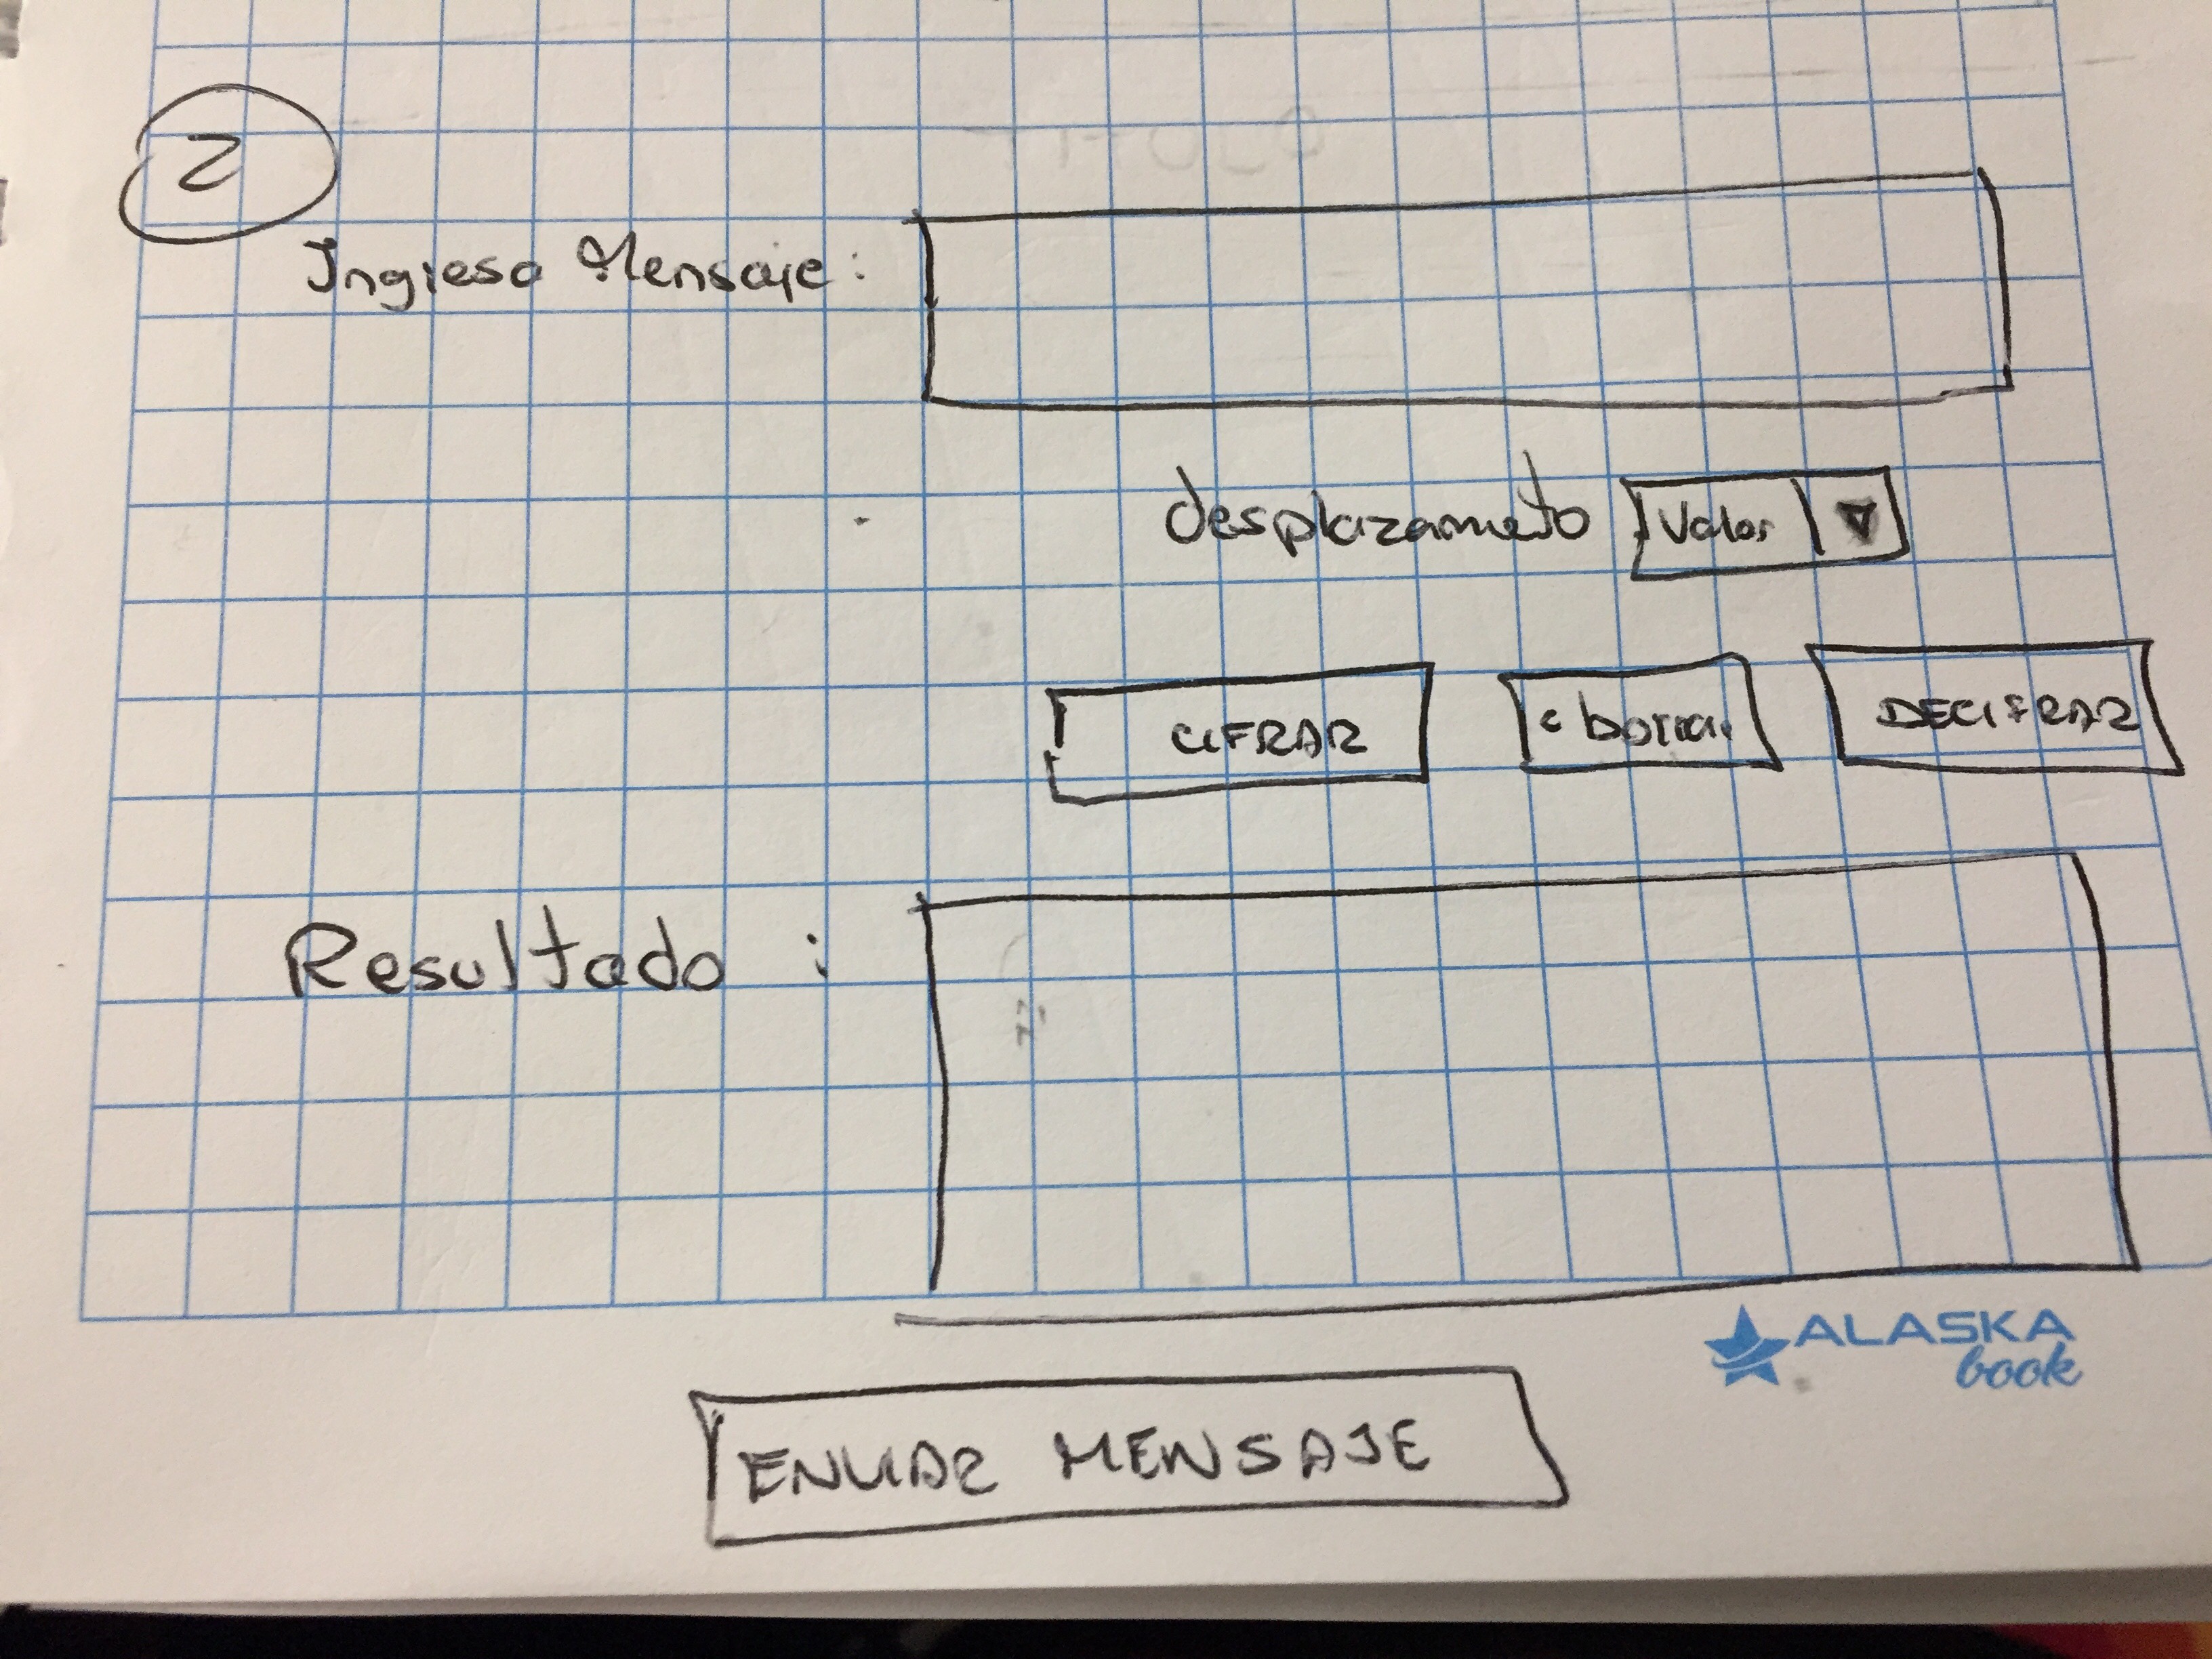 2
Ingreso Mensaje:
desplazameto
Valor
CIFRAR
borrar
DECIFRAR
Resultado :
ALASKA
book
ENVIAR MENSAJE